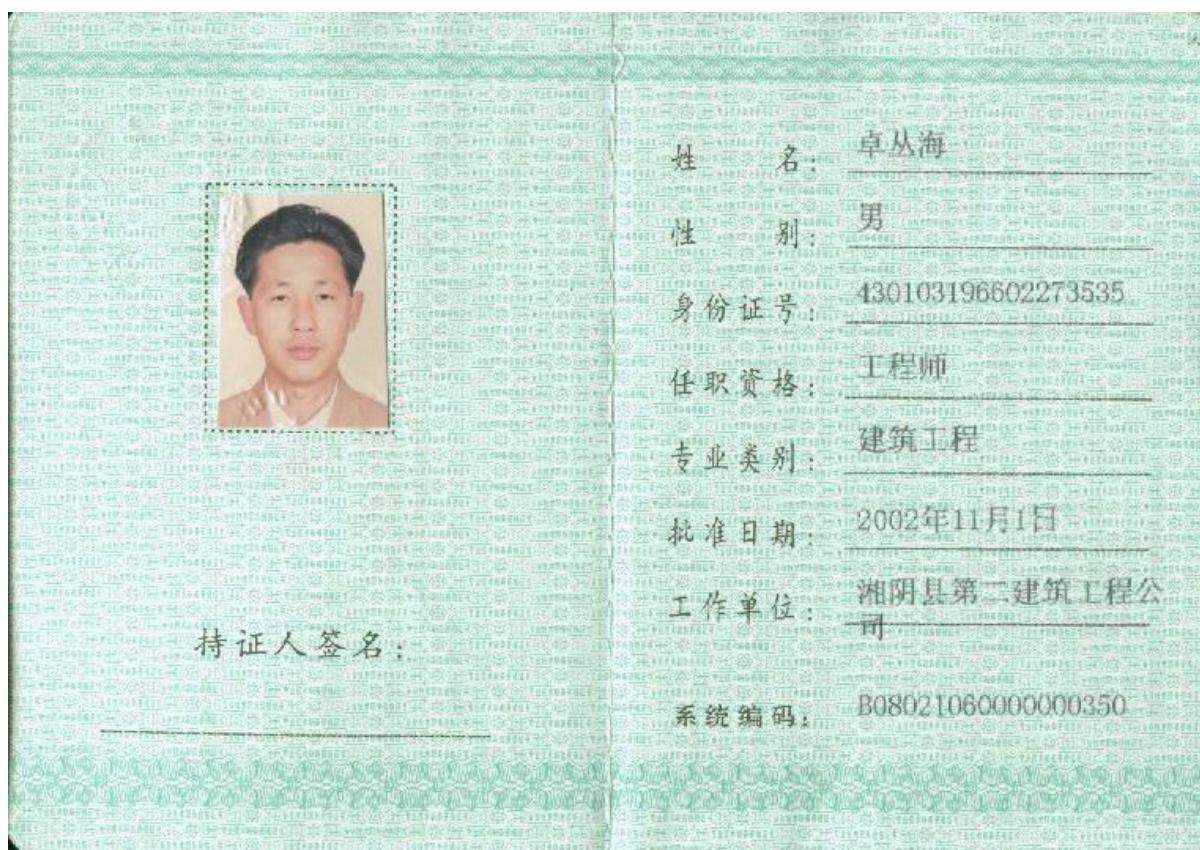 持证人签名:
姓 名: 卓丛海
性 别: 男
身份证号: 430103196602273535
任职资格: 工程师
专业类别: 建筑工程
批准日期: 2002年11月1日
工作单位: 湘阴县第二建筑工程公
司
系统编码: B08021060000000350